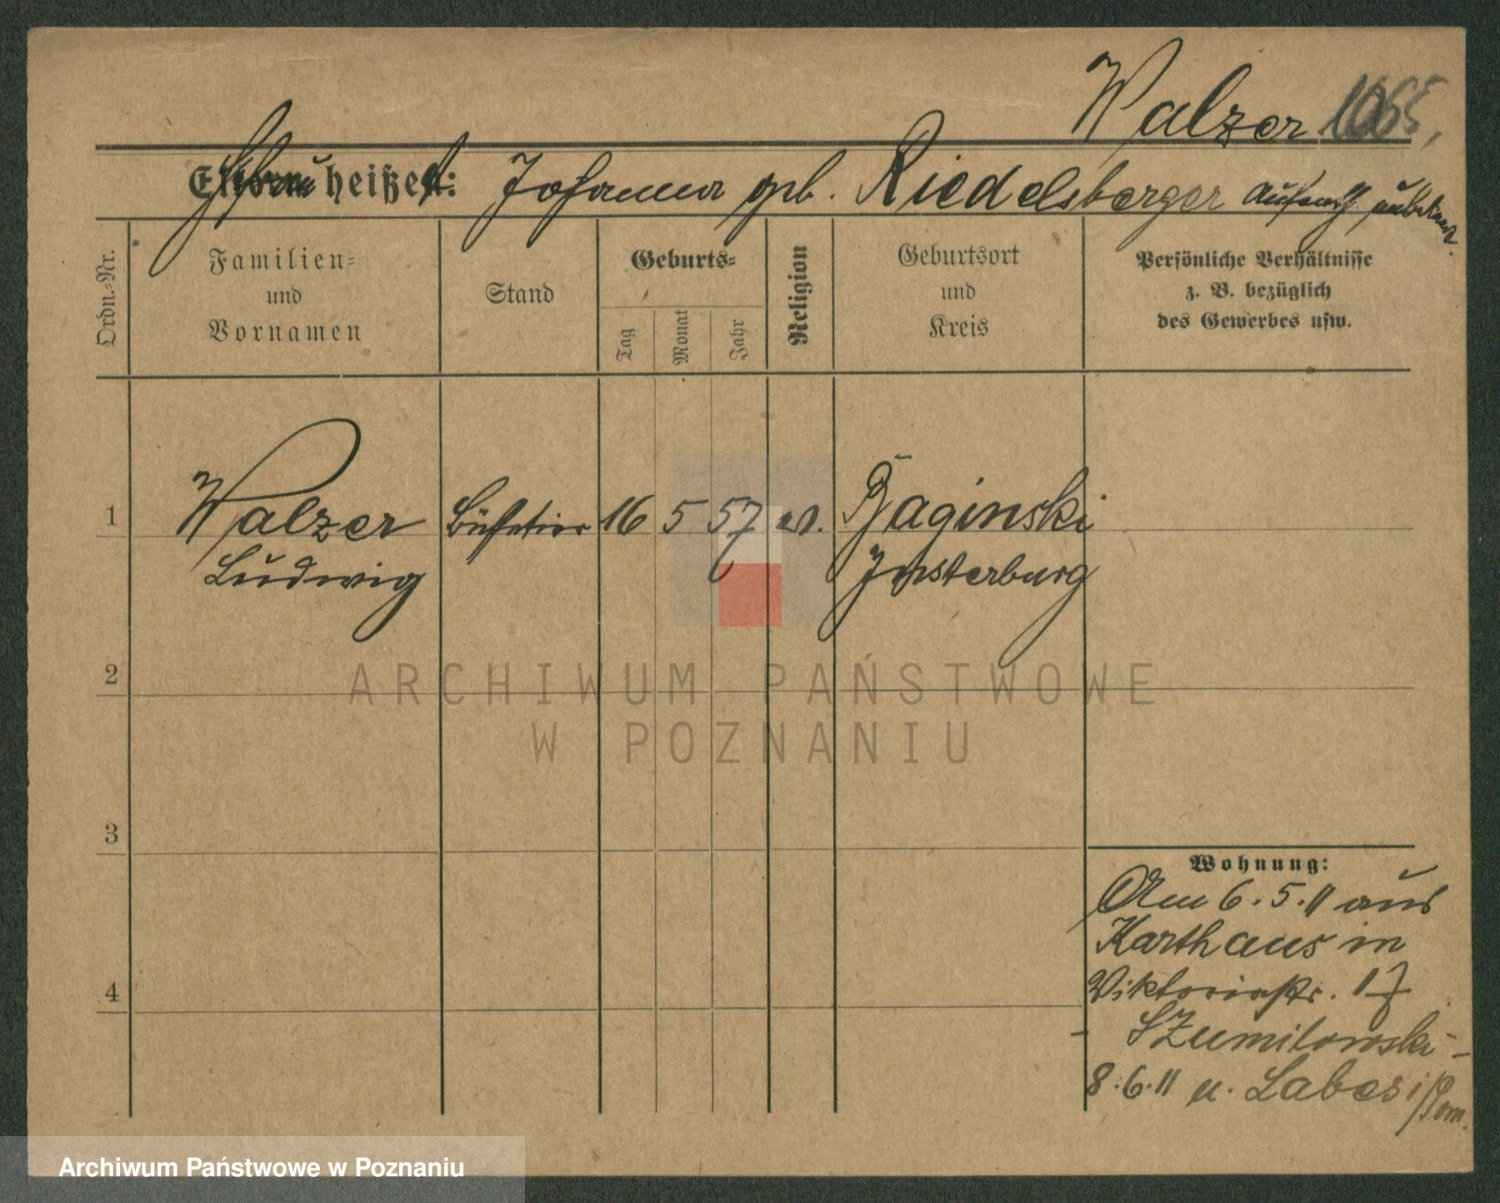 Walzer 1065.
Ehefrau heißt: Johanna geb. Riedelsberger Aufenth. unbekannt
Ordn.-Nr.
Familien-
und
Vornamen
Stand
Geburts-
Tag
Monat
Jahr
Religion
Geburtsort
und
Kreis
Persönliche Verhältnisse
z. B. bezüglich
des Gewerbes usw.
1 Walzer Büfetier 16 5 57 ev. Baginski
Ludwig Insterburg
2
3
4
Wohnung:
Am 6.5.11 aus
Karthaus in
Viktoriastr. 17
- Szumilowski -
8.6.11 n. Labes i/Pom.
ARCHIWUM PAŃSTWOWE
W POZNANIU
Archiwum Państwowe w Poznaniu